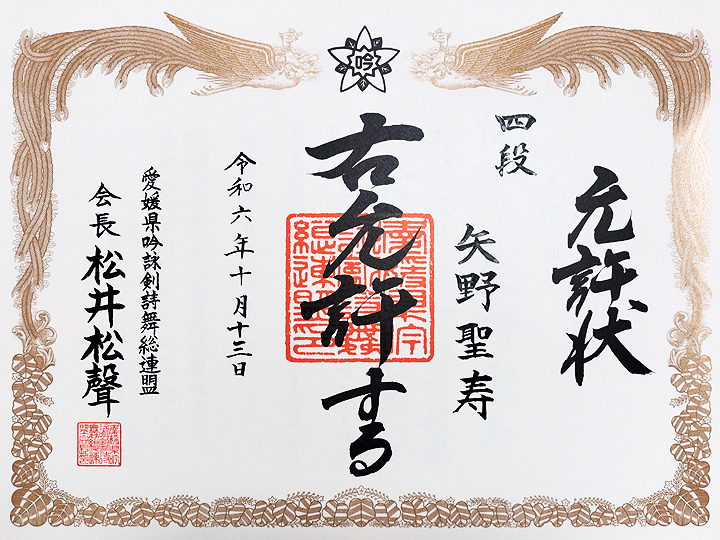 允許状
四段
矢野聖寿
右允許する
令和六年十月十三日
愛媛県吟詠剣詩舞総連盟
会長 松井松聲
吟